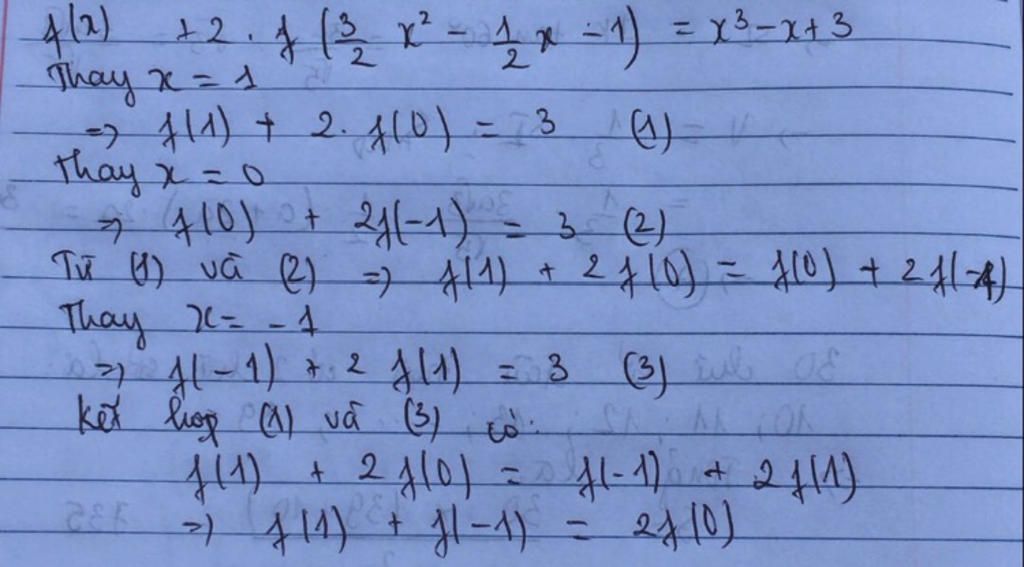 f(x) + 2 . f (3/2 x² - 1/2 x - 1) = x³ - x + 3
Thay x = 1
=> f(1) + 2. f(0) = 3 (1)
Thay x = 0
=> f(0) + 2f(-1) = 3 (2)
Từ (1) và (2) => f(1) + 2 f(0) = f(0) + 2 f(-1)
Thay x = -1
=> f(-1) + 2 f(1) = 3 (3)
Kết hợp (1) và (3) có:
f(1) + 2 f(0) = f(-1) + 2 f(1)
=> f(1) + f(-1) = 2f(0)